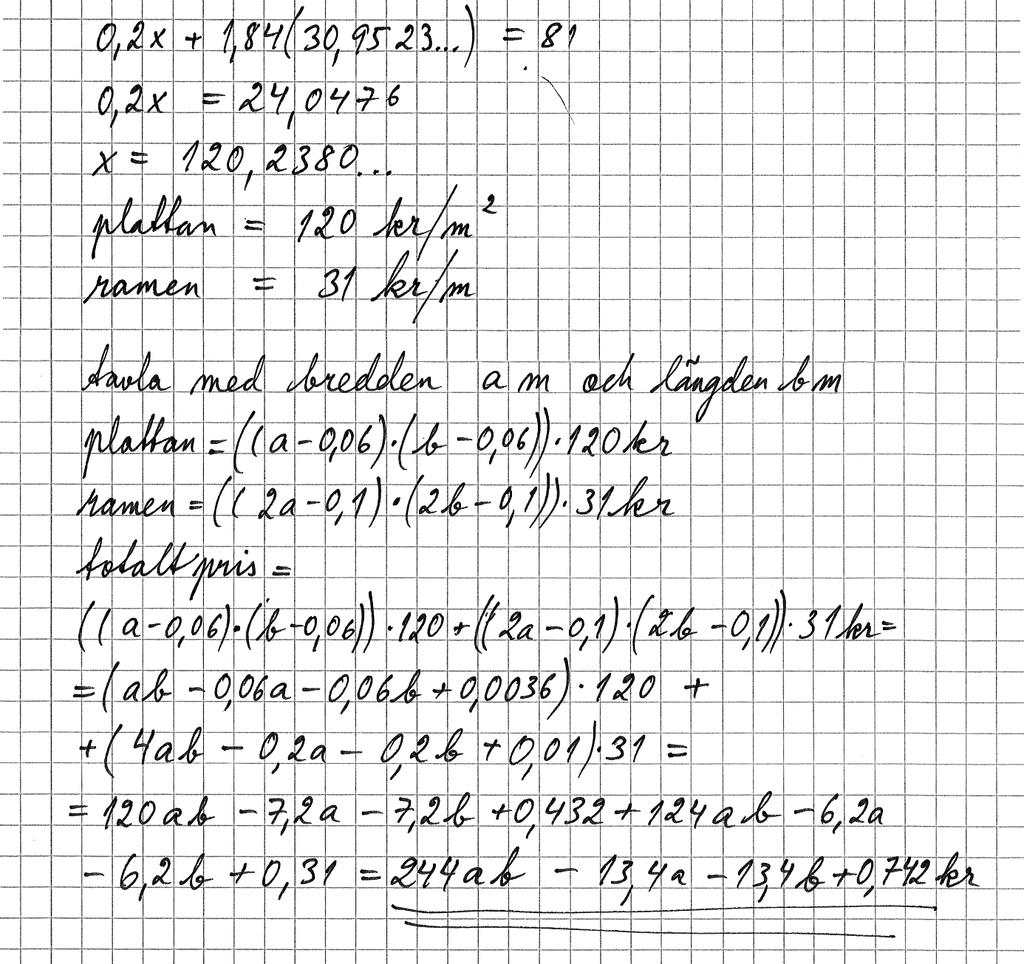 0,2x + 1,84(30,9523...) = 81
0,2x = 24,0476
x = 120,2380...
plattan = 120 kr/m²
ramen = 31 kr/m
tavla med bredden a m och längden b m
plattan = ((a - 0,06)·(b - 0,06))·120 kr
ramen = ((2a - 0,1)·(2b - 0,1))·31 kr
totalt pris =
((a - 0,06)·(b - 0,06))·120 + ((2a - 0,1)·(2b - 0,1))·31 kr =
= (ab - 0,06a - 0,06b + 0,0036)·120 +
+ (4ab - 0,2a - 0,2b + 0,01)·31 =
= 120ab - 7,2a - 7,2b + 0,432 + 124ab - 6,2a
- 6,2b + 0,31 = 244ab - 13,4a - 13,4b + 0,742 kr